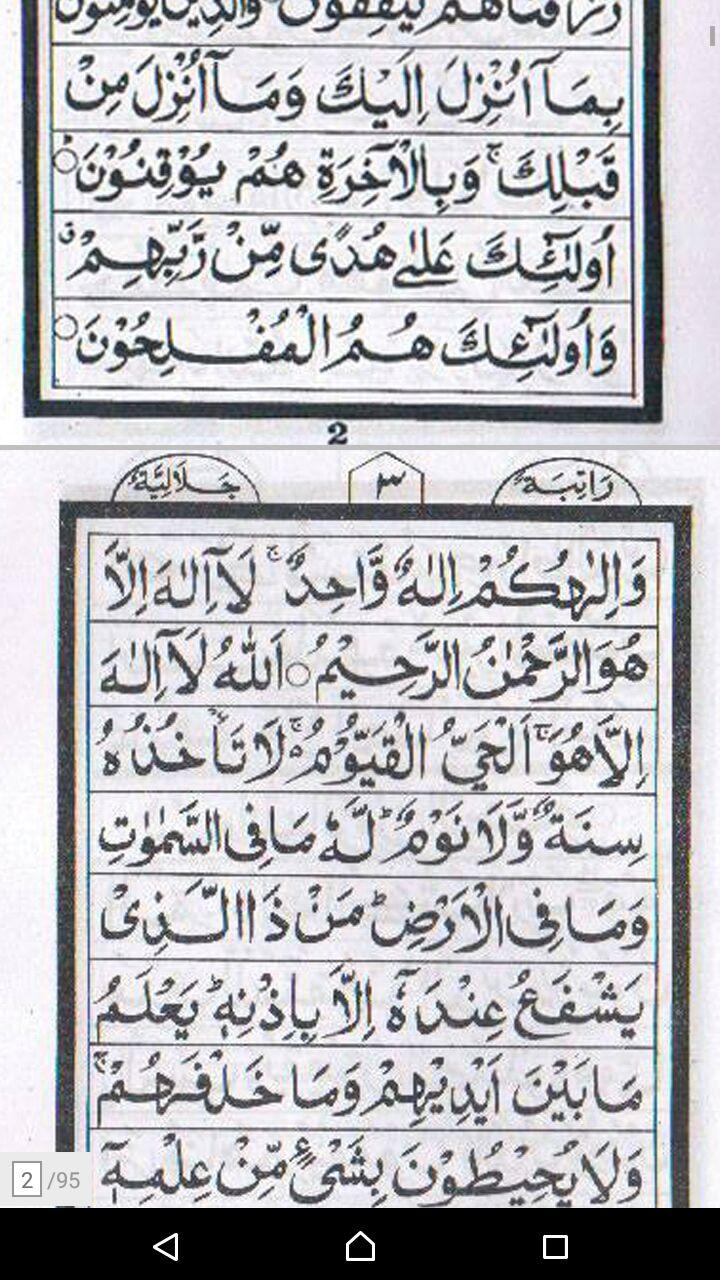 رَزَقْنَاهُمْ يُنْفِقُوْنَ وَالَّذِيْنَ يُؤْمِنُوْنَ
بِمَآ اُنْزِلَ اِلَيْكَ وَمَآ اُنْزِلَ مِنْ
قَبْلِكَ ۚ وَبِالْاٰخِرَةِ هُمْ يُوْقِنُوْنَ ؕ○
اُولٰٓئِكَ عَلٰى هُدًى مِّنْ رَّبِّهِمْ ۙ
وَاُولٰٓئِكَ هُمُ الْمُفْلِحُوْنَ ○
2
رَاتِبَةٌ ٣ جَلَالِيَّةٌ
وَاِلٰهُكُمْ اِلٰهٌ وَّاحِدٌ ۚ لَآ اِلٰهَ اِلَّا
هُوَ الرَّحْمٰنُ الرَّحِيْمُ ○ اَللّٰهُ لَآ اِلٰهَ
اِلَّا هُوَ ۚ اَلْحَيُّ الْقَيُّوْمُ ۚ لَا تَاْخُذُهٗ
سِنَةٌ وَّلَا نَوْمٌ ؕ لَهٗ مَا فِى السَّمٰوٰتِ
وَمَا فِى الْاَرْضِ ؕ مَنْ ذَا الَّذِىْ
يَشْفَعُ عِنْدَهٗٓ اِلَّا بِاِذْنِهٖ ؕ يَعْلَمُ
مَا بَيْنَ اَيْدِيْهِمْ وَمَا خَلْفَهُمْ ۚ
وَلَا يُحِيْطُوْنَ بِشَىْءٍ مِّنْ عِلْمِهٖٓ
2 /95